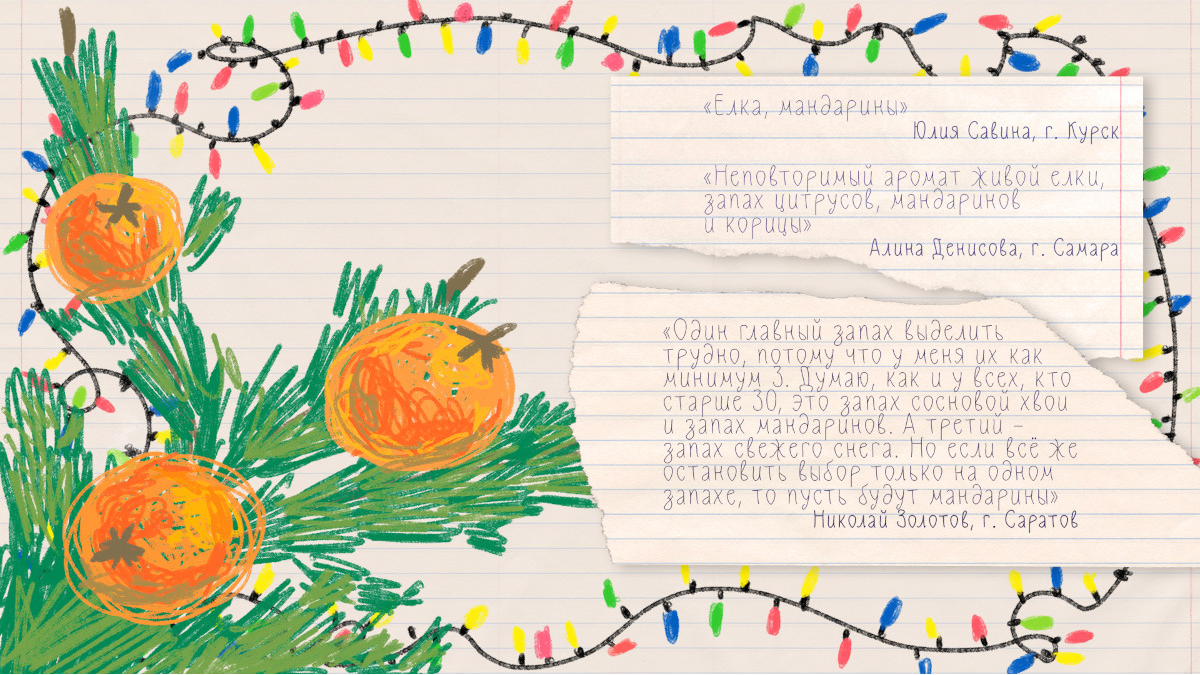 «Елка, мандарины»
Юлия Савина, г. Курск
«Неповторимый аромат живой елки,
запах цитрусов, мандаринов
и корицы»
Алина Денисова, г. Самара
«Один главный запах выделить
трудно, потому что у меня их как
минимум 3. Думаю, как и у всех, кто
старше 30, это запах сосновой хвои
и запах мандаринов. А третий –
запах свежего снега. Но если всё же
остановить выбор только на одном
запахе, то пусть будут мандарины»
Николай Золотов, г. Саратов